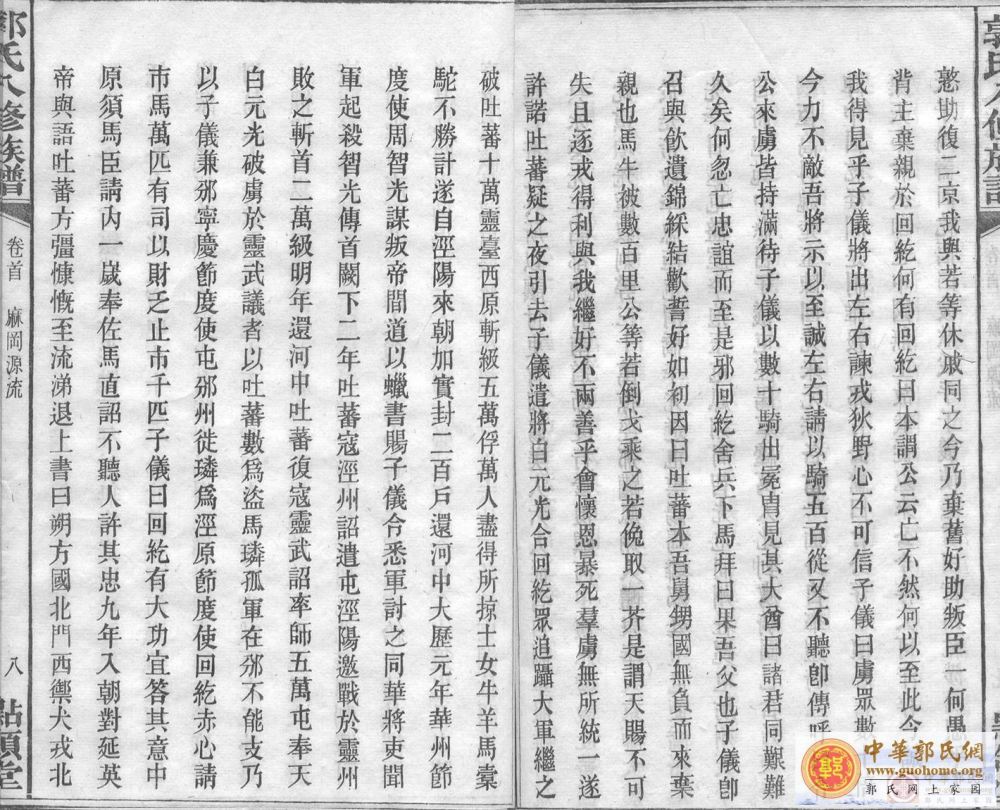 郭氏八修族譜
愍助復二京我與若等休戚同之今乃棄舊好助叛臣一何愚
背主棄親於回紇何有回紇曰本謂公云亡不然何以至此今
我得見乎子儀將出左右諫戎狄野心不可信子儀曰虜眾數
今力不敵吾將示以至誠左右請以騎五百從又不聽卽傳呼
公來虜皆持滿待子儀以數十騎出冕冑見其大酋曰諸君同艱難
久矣何忽亡忠誼而至是邪回紇舍兵下馬拜曰果吾父也子儀卽
召與飲遺錦綵結歡誓好如初因曰吐蕃本吾舅甥國無負而來棄
親也馬牛被數百里公等若倒戈乘之若俛取一芥是謂天賜不可
失且逐戎得利與我繼好不兩善乎會懷恩暴死羣虜無所統一遂
許諾吐蕃疑之夜引去子儀遣將白元光合回紇眾追躡大軍繼之
破吐蕃十萬靈臺西原斬級五萬俘萬人盡得所掠士女牛羊馬橐
駝不勝計遂自涇陽來朝加實封二百戶還河中大歷元年華州節
度使周智光謀叛帝間道以蠟書賜子儀令悉軍討之同華將吏聞
軍起殺智光傳首闕下二年吐蕃寇涇州詔遣屯涇陽邀戰於靈州
敗之斬首二萬級明年還河中吐蕃復寇靈武詔率師五萬屯奉天
白元光破虜於靈武議者以吐蕃數爲盜馬璘孤軍在邠不能支乃
以子儀兼邠寧慶節度使屯邠州徙璘爲涇原節度使回紇赤心請
市馬萬匹有司以財乏止市千匹子儀曰回紇有大功宜答其意中
原須馬臣請內一歲奉佐馬直詔不聽人許其忠九年入朝對延英
帝與語吐蕃方彊慷慨至流涕退上書曰朔方國北門西禦犬戎北
郭氏八修族譜
卷首 麻岡源流
八
點頭堂
中華郭氏網
www.guohome.org
郭氏網上家園